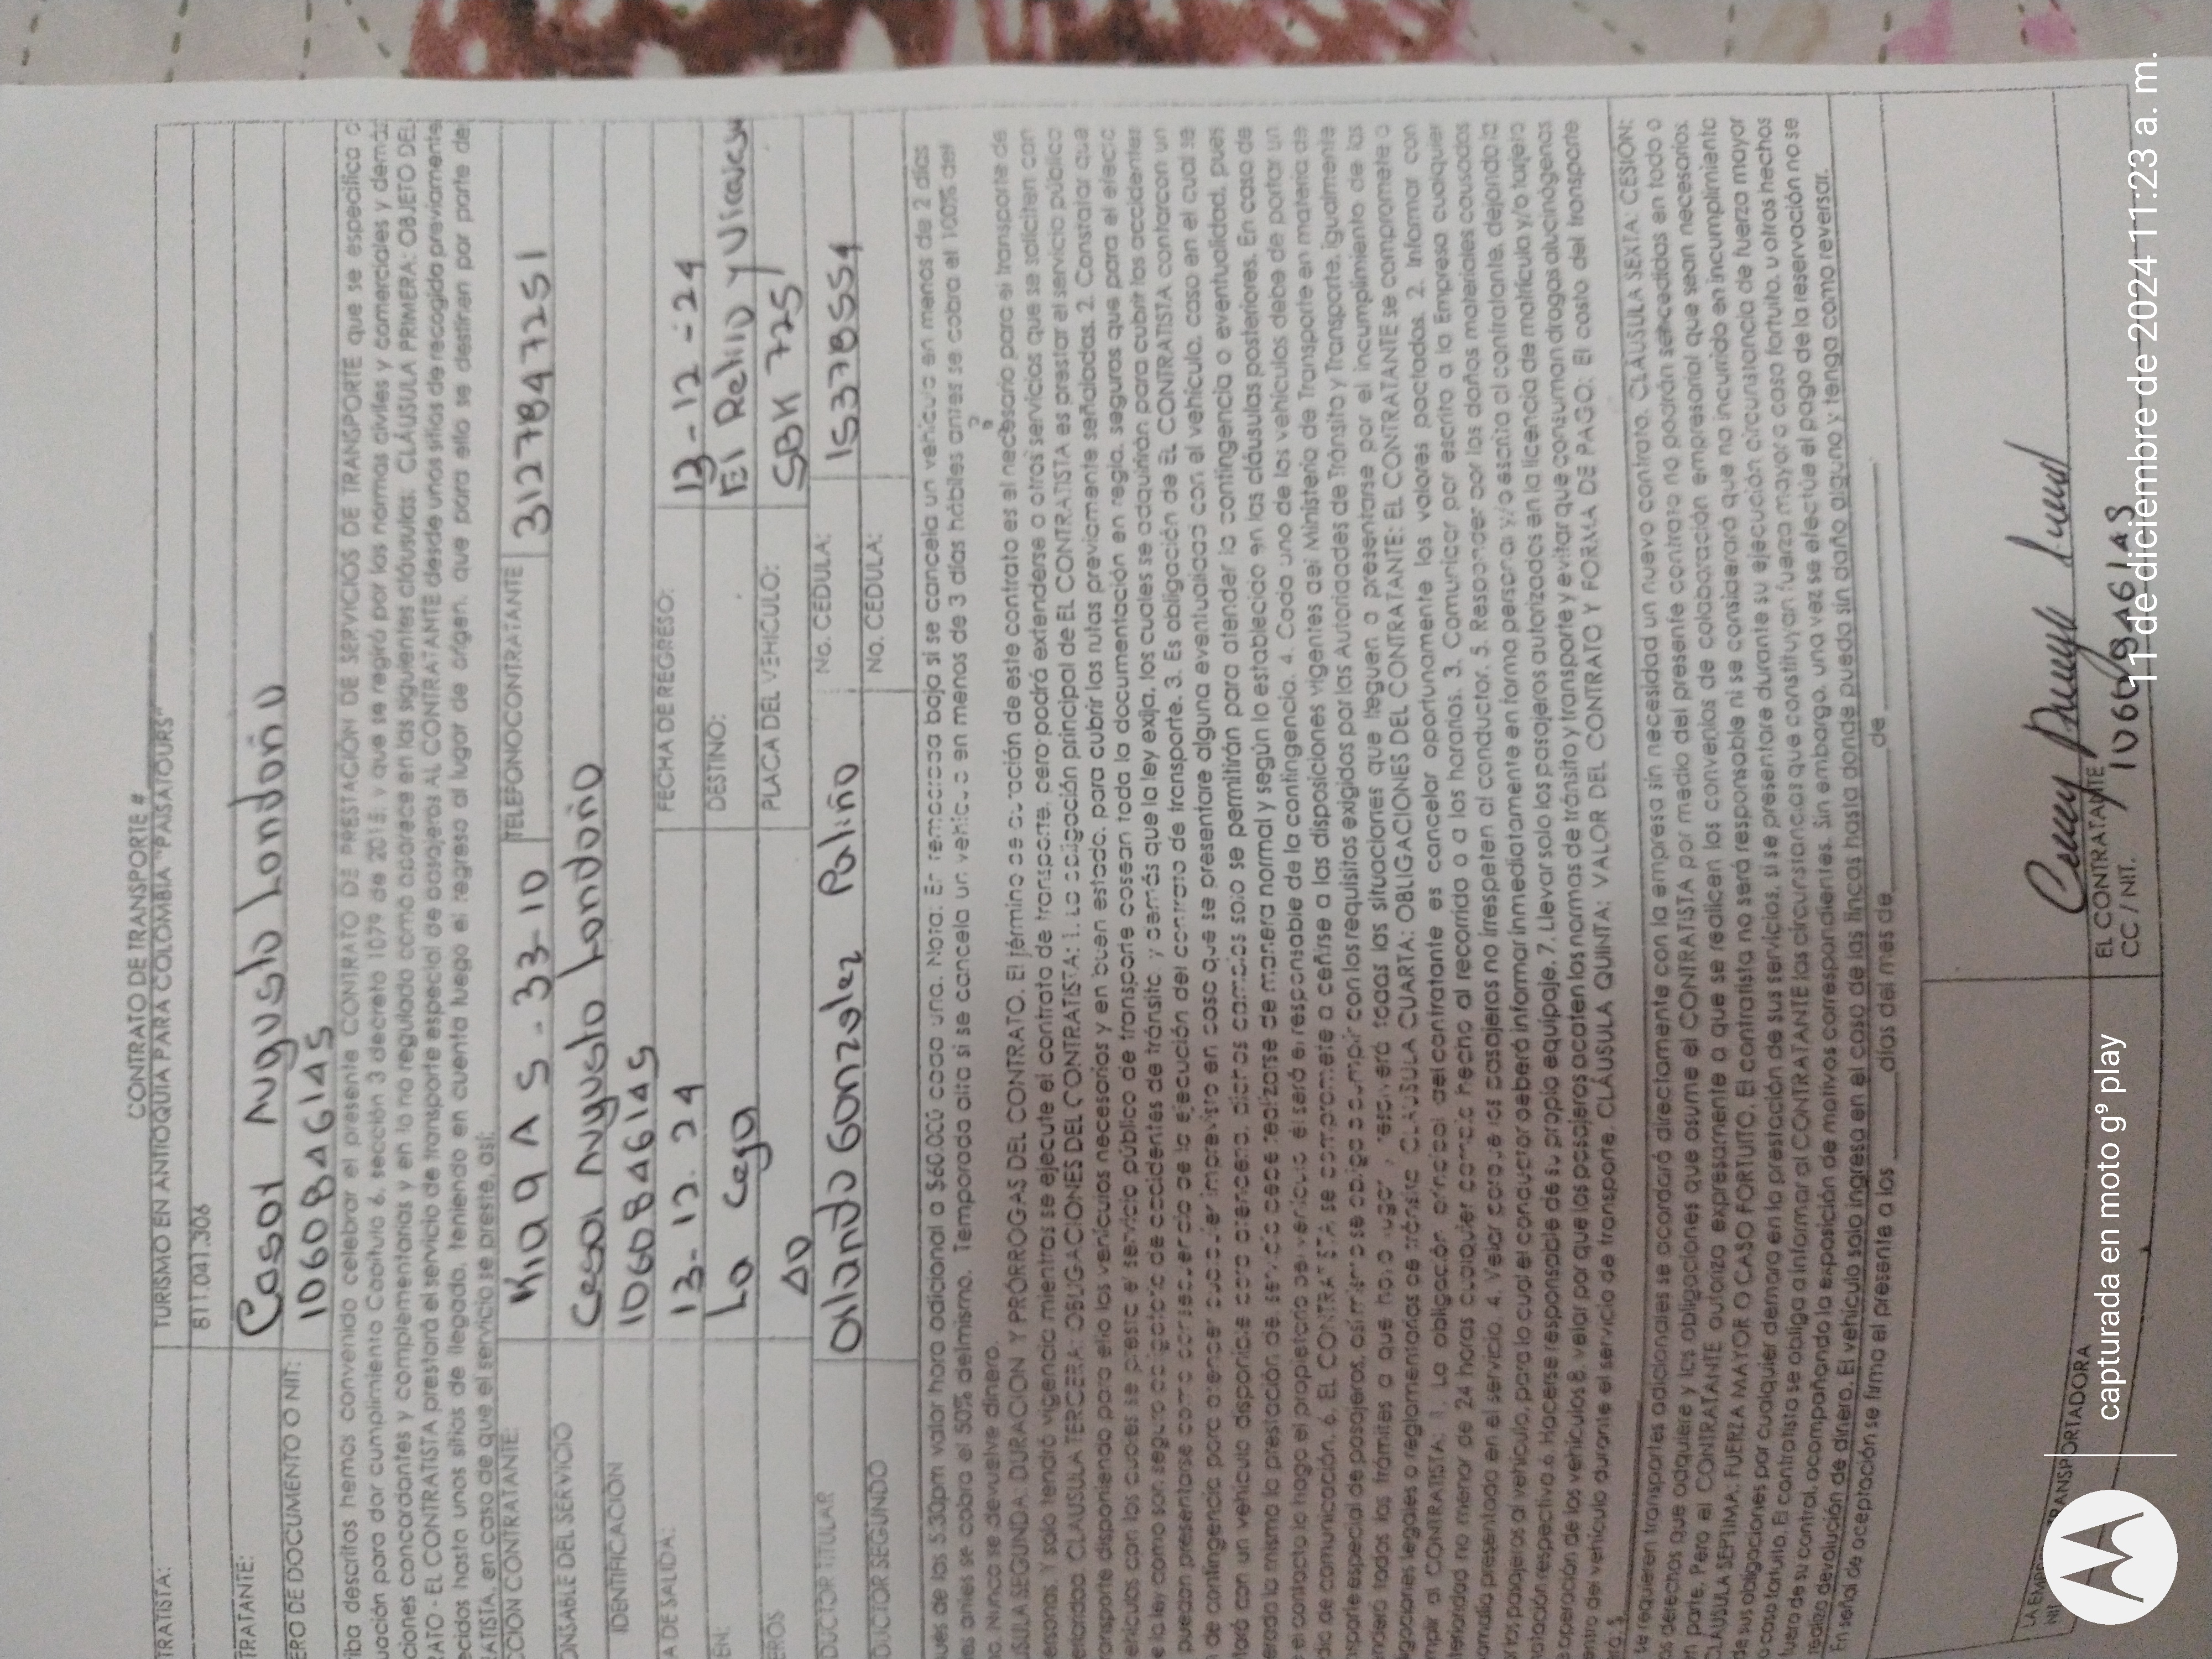 CONTRATO DE TRANSPORTE #
TRATISTA: TURISMO EN ANTIOQUIA PARA COLOMBIA "PAISATOURS"
811.041.306
TRATANTE: Cesar Augusto Londoño
ERO DE DOCUMENTO O NIT: 1060846145
iba descritos hemos convenido celebrar el presente CONTRATO DE PRESTACIÓN DE SERVICIOS DE TRANSPORTE que se especifica
uación para dar cumplimiento Capitulo 6, sección 3 decreto 1079 de 2015, y que se regirá por las normas civiles y comerciales y demás
ciones concordantes y complementarias y en lo no regulado como aparece en las siguientes cláusulas. CLÁUSULA PRIMERA: OBJETO DEL
RATO - EL CONTRATISTA prestará el servicio de transporte especial de pasajeros AL CONTRATANTE desde unos sitios de recogida previamente
ecidos hasta unos sitios de llegada, teniendo en cuenta luego el regreso al lugar de origen, que para ello se destinen por parte de
ATISTA, en caso de que el servicio se preste, así:
CCION CONTRATANTE: TELEFONO CONTRATANTE 3127847251
ONSABLE DEL SERVICIO Cesar Augusto Londoño
IDENTIFICACION
A DE SALIDA: 13-12-24 FECHA DE REGRESO: 13-12-24
EN: La Ceja DESTINO: El Peñol y
EROS PLACA DEL VEHICULO: 725
DUCTOR TITULAR Gonzalez Patiño No. CEDULA: 15378554
DUCTOR SEGUNDO No. CEDULA:
ues de las 5:30pm valor hora adicional a $60.000 cada una. Nota: En temporada baja si se cancela un vehículo en menos de 2 días
es antes se cobra el 50% del mismo. Temporada alta si se cancela un vehículo en menos de 3 días hábiles antes se cobara el 100% del
o. Nunca se devuelve dinero.
USULA SEGUNDA. DURACION Y PRÓRROGAS DEL CONTRATO. El término de duración de este contrato es el necesario para el transporte de
ersonas. Y solo tendrá vigencia mientras se ejecute el contrato de transporte, pero podrá extenderse a otros servicios que se soliciten con
erioridad. CLAUSULA TERCERA: OBLIGACIONES DEL CONTRATISTA: 1. La obligación principal de EL CONTRATISTA es prestar el servicio público
ansporte disponiendo para ello los vehículos necesarios y en buen estado, para cubrir las rutas previamente señaladas. 2. Constatar que
ehículos con los cuales se preste el servicio público de transporte posean toda la documentación en regla, seguros que para el efecto
e la ley como son, seguro obligatorio de accidentes de tránsito y demás que la ley exija, los cuales se adquirirán para cubrir los accidentes
puedan presentarse como consecuencia de la ejecución del contrato de transporte. 3. Es obligación de EL CONTRATISTA contar con un
de contingencia para atender cualquier imprevisto en caso que se presentare alguna eventualidad con el vehículo, caso en el cual se
tará con un vehículo disponible para atenderla, dichos cambios solo se permitirán para atender la contingencia o eventualidad, pues
erado lo mismo la prestación de servicio debe realizarse de manera normal y según lo establecido en las cláusulas posteriores. En caso de
el contacto lo haga el propietario del vehículo él será el responsable de la contingencia. 4. Cada uno de los vehículos debe de portar un
dio de comunicación. 6. EL CONTRATISTA se compromete a ceñirse a las disposiciones vigentes del Ministerio de Transporte en materia de
nsporte especial de pasajeros, así mismo se obliga a cumplir con los requisitos exigidos por las Autoridades de Tránsito y Transporte, igualmente
nderá todos los trámites a que haya lugar y resolverá todas las situaciones que lleguen a presentarse por el incumplimiento de las
igaciones legales o reglamentarias de tránsito CLÁUSULA CUARTA: OBLIGACIONES DEL CONTRATANTE: EL CONTRATANTE se compromete a
mplir al CONTRATISTA: 1. La obligación principal del contratante es cancelar oportunamente los valores pactados. 2. Informar con
terioridad no menor de 24 horas cualquier cambio hecho al recorrido o a los horarios. 3. Comunicar por escrito a la Empresa cualquier
omalía presentada en el servicio. 4. Velar porque los pasajeros no irrespeten al conductor. 5. Responder por los daños materiales causados
r los pasajeros al vehículo, para lo cual el conductor deberá informar inmediatamente en forma personal y/o escrita al contratante, dejando la
otación respectiva 6. Hacerse responsable de su propio equipaje. 7. Llevar solo los pasajeros autorizados en la licencia de matrícula y/o tarjeta
e operación de los vehículos 8. velar por que los pasajeros acaten las normas de tránsito y transporte y evitar que consuman drogas alucinógenas
entro del vehículo durante el servicio de transporte. CLÁUSULA QUINTA: VALOR DEL CONTRATO Y FORMA DE PAGO: El costo del transporte
rá: $
se requieren transportes adicionales se acordará directamente con la empresa sin necesidad un nuevo contrato. CLÁUSULA SEXTA: CESIÓN:
os derechos que adquiere y las obligaciones que asume el CONTRATISTA por medio del presente contrato no podrán ser cedidas en todo o
n parte. Pero el CONTRATANTE autoriza expresamente a que se realicen los convenios de colaboración empresarial que sean necesarios.
CLÁUSULA SEPTIMA. FUERZA MAYOR O CASO FORTUITO. El contratista no será responsable ni se considerará que ha incurrido en incumplimiento
de sus obligaciones por cualquier demora en la prestación de sus servicios, si se presentare durante su ejecución circunstancia de fuerza mayor
o caso fortuito. El contratista se obliga a informar al CONTRATANTE las circunstancias que constituyan fuerza mayor o caso fortuito, u otros hechos
fuera de su control, acompañando la exposición de motivos correspondientes. Sin embargo, una vez se efectúe el pago de la reservación no se
realiza devolución de dinero. El vehículo solo ingresa en el caso de las fincas hasta donde pueda sin daño alguno y tenga como reversar.
En señal de aceptación se firma el presente a los ______ días del mes de ______ de ______
LA TRANSPORTADORA EL CONTRATANTE
CC / NIT.
capturada en moto g⁹ play 11 de diciembre de 2024 11:23 a. m.